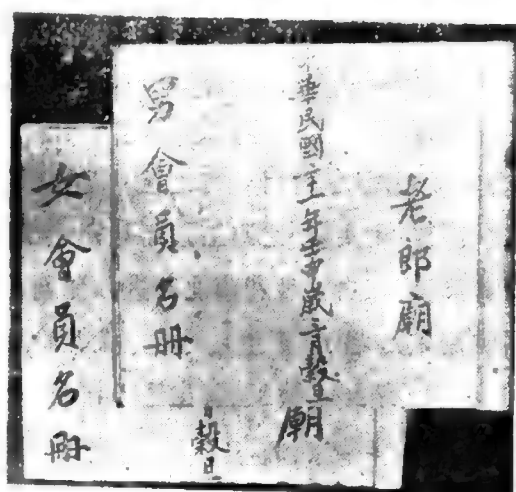 老郎廟
華民國二十一年壬申歲穀旦
廟
穀旦
男會員名冊
女會員名冊